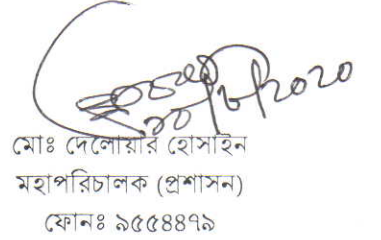 মোঃ দেলোয়ার হোসাইন
মহাপরিচালক (প্রশাসন)
ফোনঃ ৯৫৫৪৪৭৯